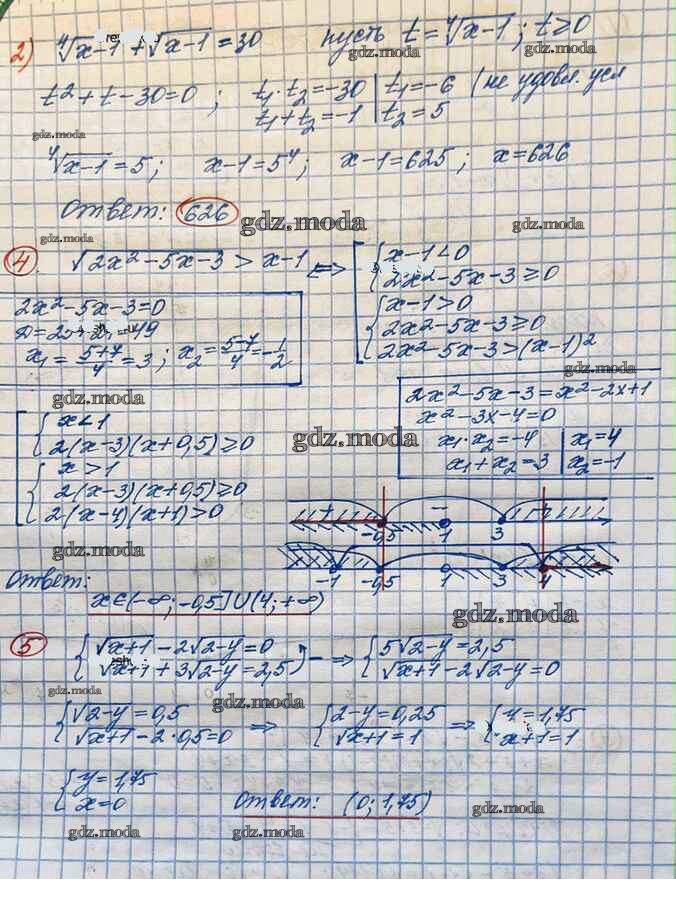 2) ⁴√x-1 + √x-1 = 30 пусть t = ⁴√x-1; t≥0
gdz.moda gdz.moda
t²+t-30=0; t₁·t₂=-30 | t₁=-6 (не удовл. усл
t₁+t₂=-1 | t₂=5
gdz.moda gdz.moda
⁴√x-1=5; x-1=5⁴; x-1=625; x=626
Ответ: 626
gdz.moda gdz.moda gdz.moda
4. √2x²-5x-3 > x-1 <=> [ { x-1<0
2x²-5x-3≥0
{ x-1>0
2x²-5x-3≥0
2x²-5x-3>(x-1)²
2x²-5x-3=0
=49
x₁=5+7/4=3; x₂=5-7/4=-1/2
gdz.moda gdz.moda
2x²-5x-3=x²-2x+1
x²-3x-4=0
x₁·x₂=-4 | x₁=4
x₁+x₂=3 | x₂=-1
[ { x<1
2(x-3)(x+0,5)≥0
{ x>1
2(x-3)(x+0,5)≥0
2(x-4)(x+1)>0
gdz.moda
gdz.moda
-0,5 1 3
-1 -0,5 1 3 4
Ответ:
x∈(-∞;-0,5]∪(4;+∞)
gdz.moda
5 { √x+1 - 2√2-y=0
√x+1 + 3√2-y=2,5 ) - => { 5√2-y=2,5
√x+1 - 2√2-y=0
gdz.moda gdz.moda gdz.moda
{ √2-y=0,5
√x+1 - 2·0,5=0 => { 2-y=0,25
√x+1=1 => { y=1,75
x+1=1
{ y=1,75
x=0 Ответ: (0; 1,75)
gdz.moda gdz.moda gdz.moda